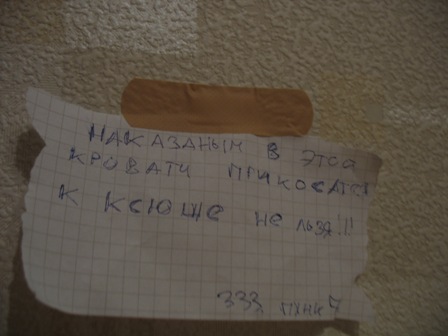 НАКАЗАНЫМ В ЭТОЙ
КРОВАТИ ПРИКОСАТСЯ
К КСЮШЕ НЕ ЛЬЗЯ!!!
333 ПУНКТ